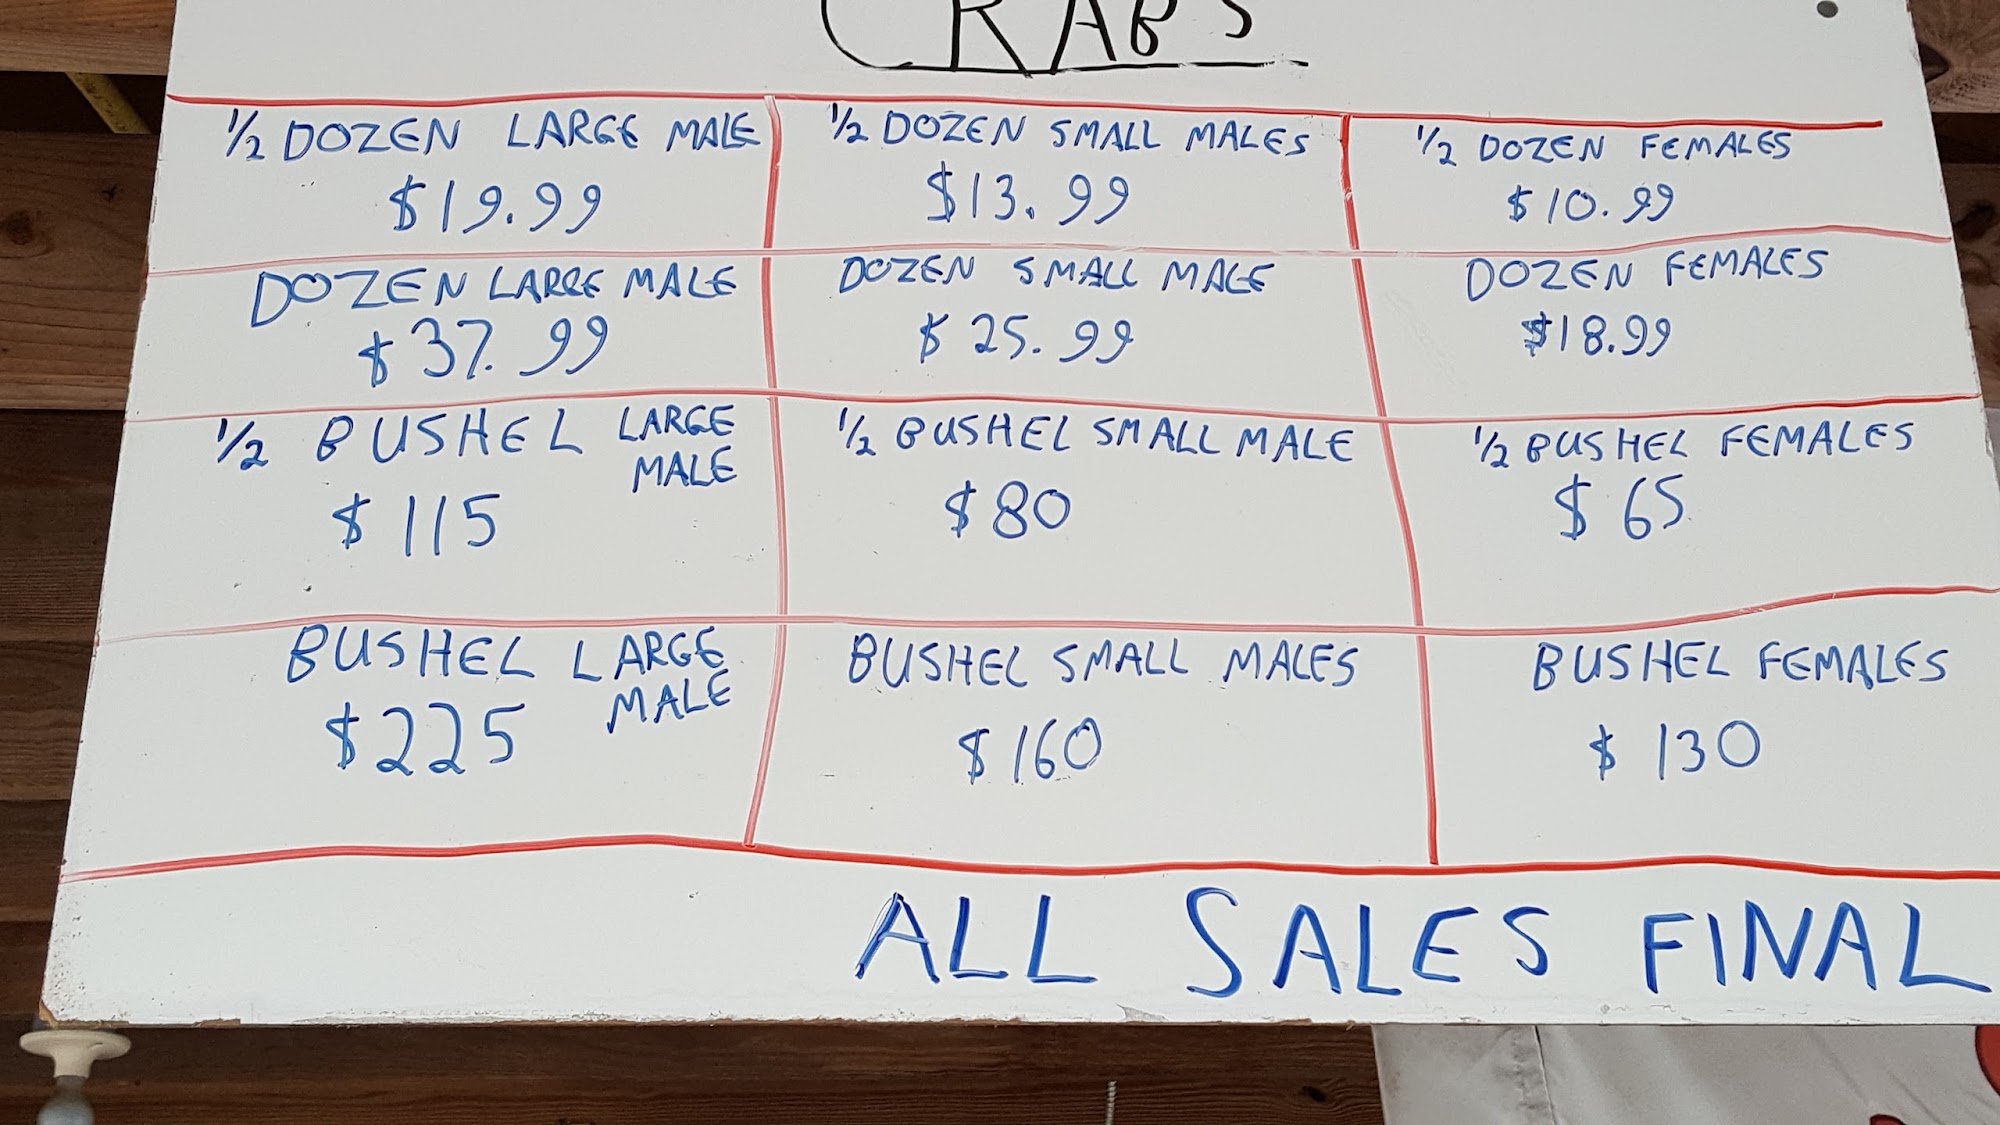 CRABS
1/2 DOZEN LARGE MALE
$19.99
1/2 DOZEN SMALL MALES
$13.99
1/2 DOZEN FEMALES
$10.99
DOZEN LARGE MALE
$37.99
DOZEN SMALL MALE
$25.99
DOZEN FEMALES
$18.99
1/2 BUSHEL LARGE
MALE
$115
1/2 BUSHEL SMALL MALE
$80
1/2 BUSHEL FEMALES
$65
BUSHEL LARGE
MALE
$225
BUSHEL SMALL MALES
$160
BUSHEL FEMALES
$130
ALL SALES FINAL